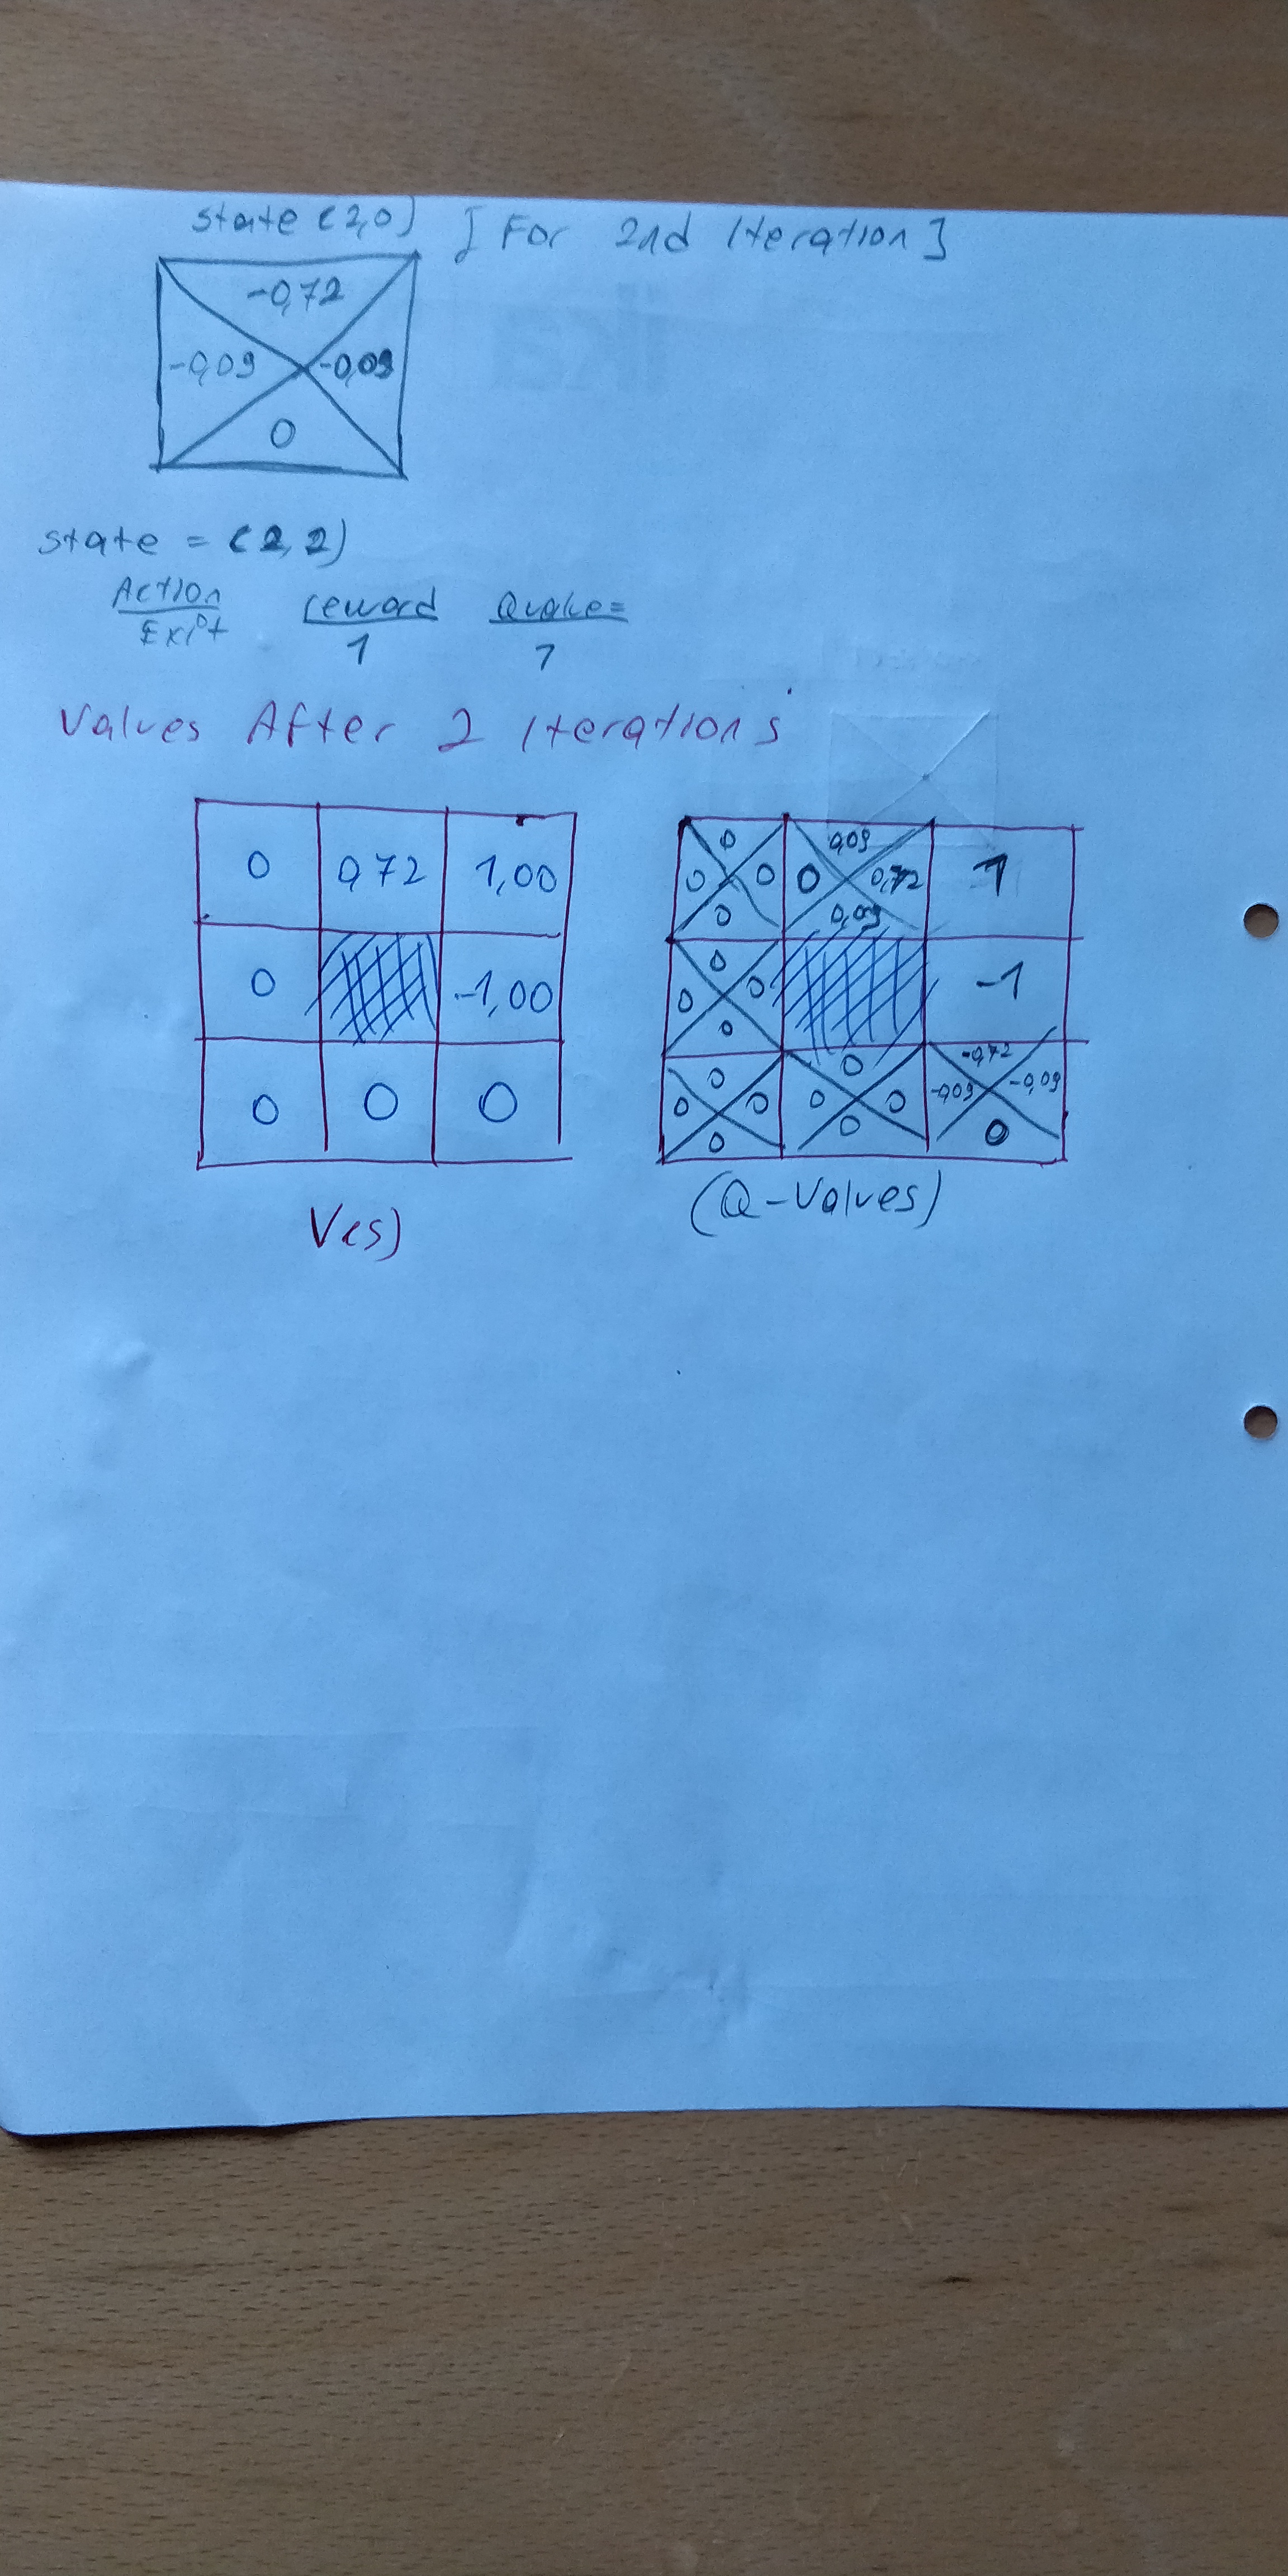 state (2,0) [For 2nd Iteration]
-0,72
-0,09 -0,09
0
state = (2,2)
Action reward Qvalue=
Exit 1 1
Values After 2 Iterations
0 0,72 1,00
0 -1,00
0 0 0
V(s)
0 0,09
0 0 0 0,72 1
0 0,09
0
0 0 -1
0
0 0 -0,72
0 0 0 0 -0,09 -0,09
0 0 0
(Q-Values)